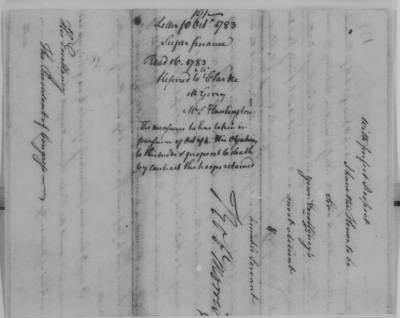 Letter 10 Octr 1783
Super finance
Read 16. 1783
Referred to Mr Clarke
Mr Gerry
Mr Huntington
The measures he has taken in
pursuance of Act of
to the mode & proposal to cloth
by contract the troops retained
With perfect Respect
I have the Honor to be
Sir
your Excellency's
most obedient
&
humble Servant
Robt Morris
His Excellency
The President of Congress